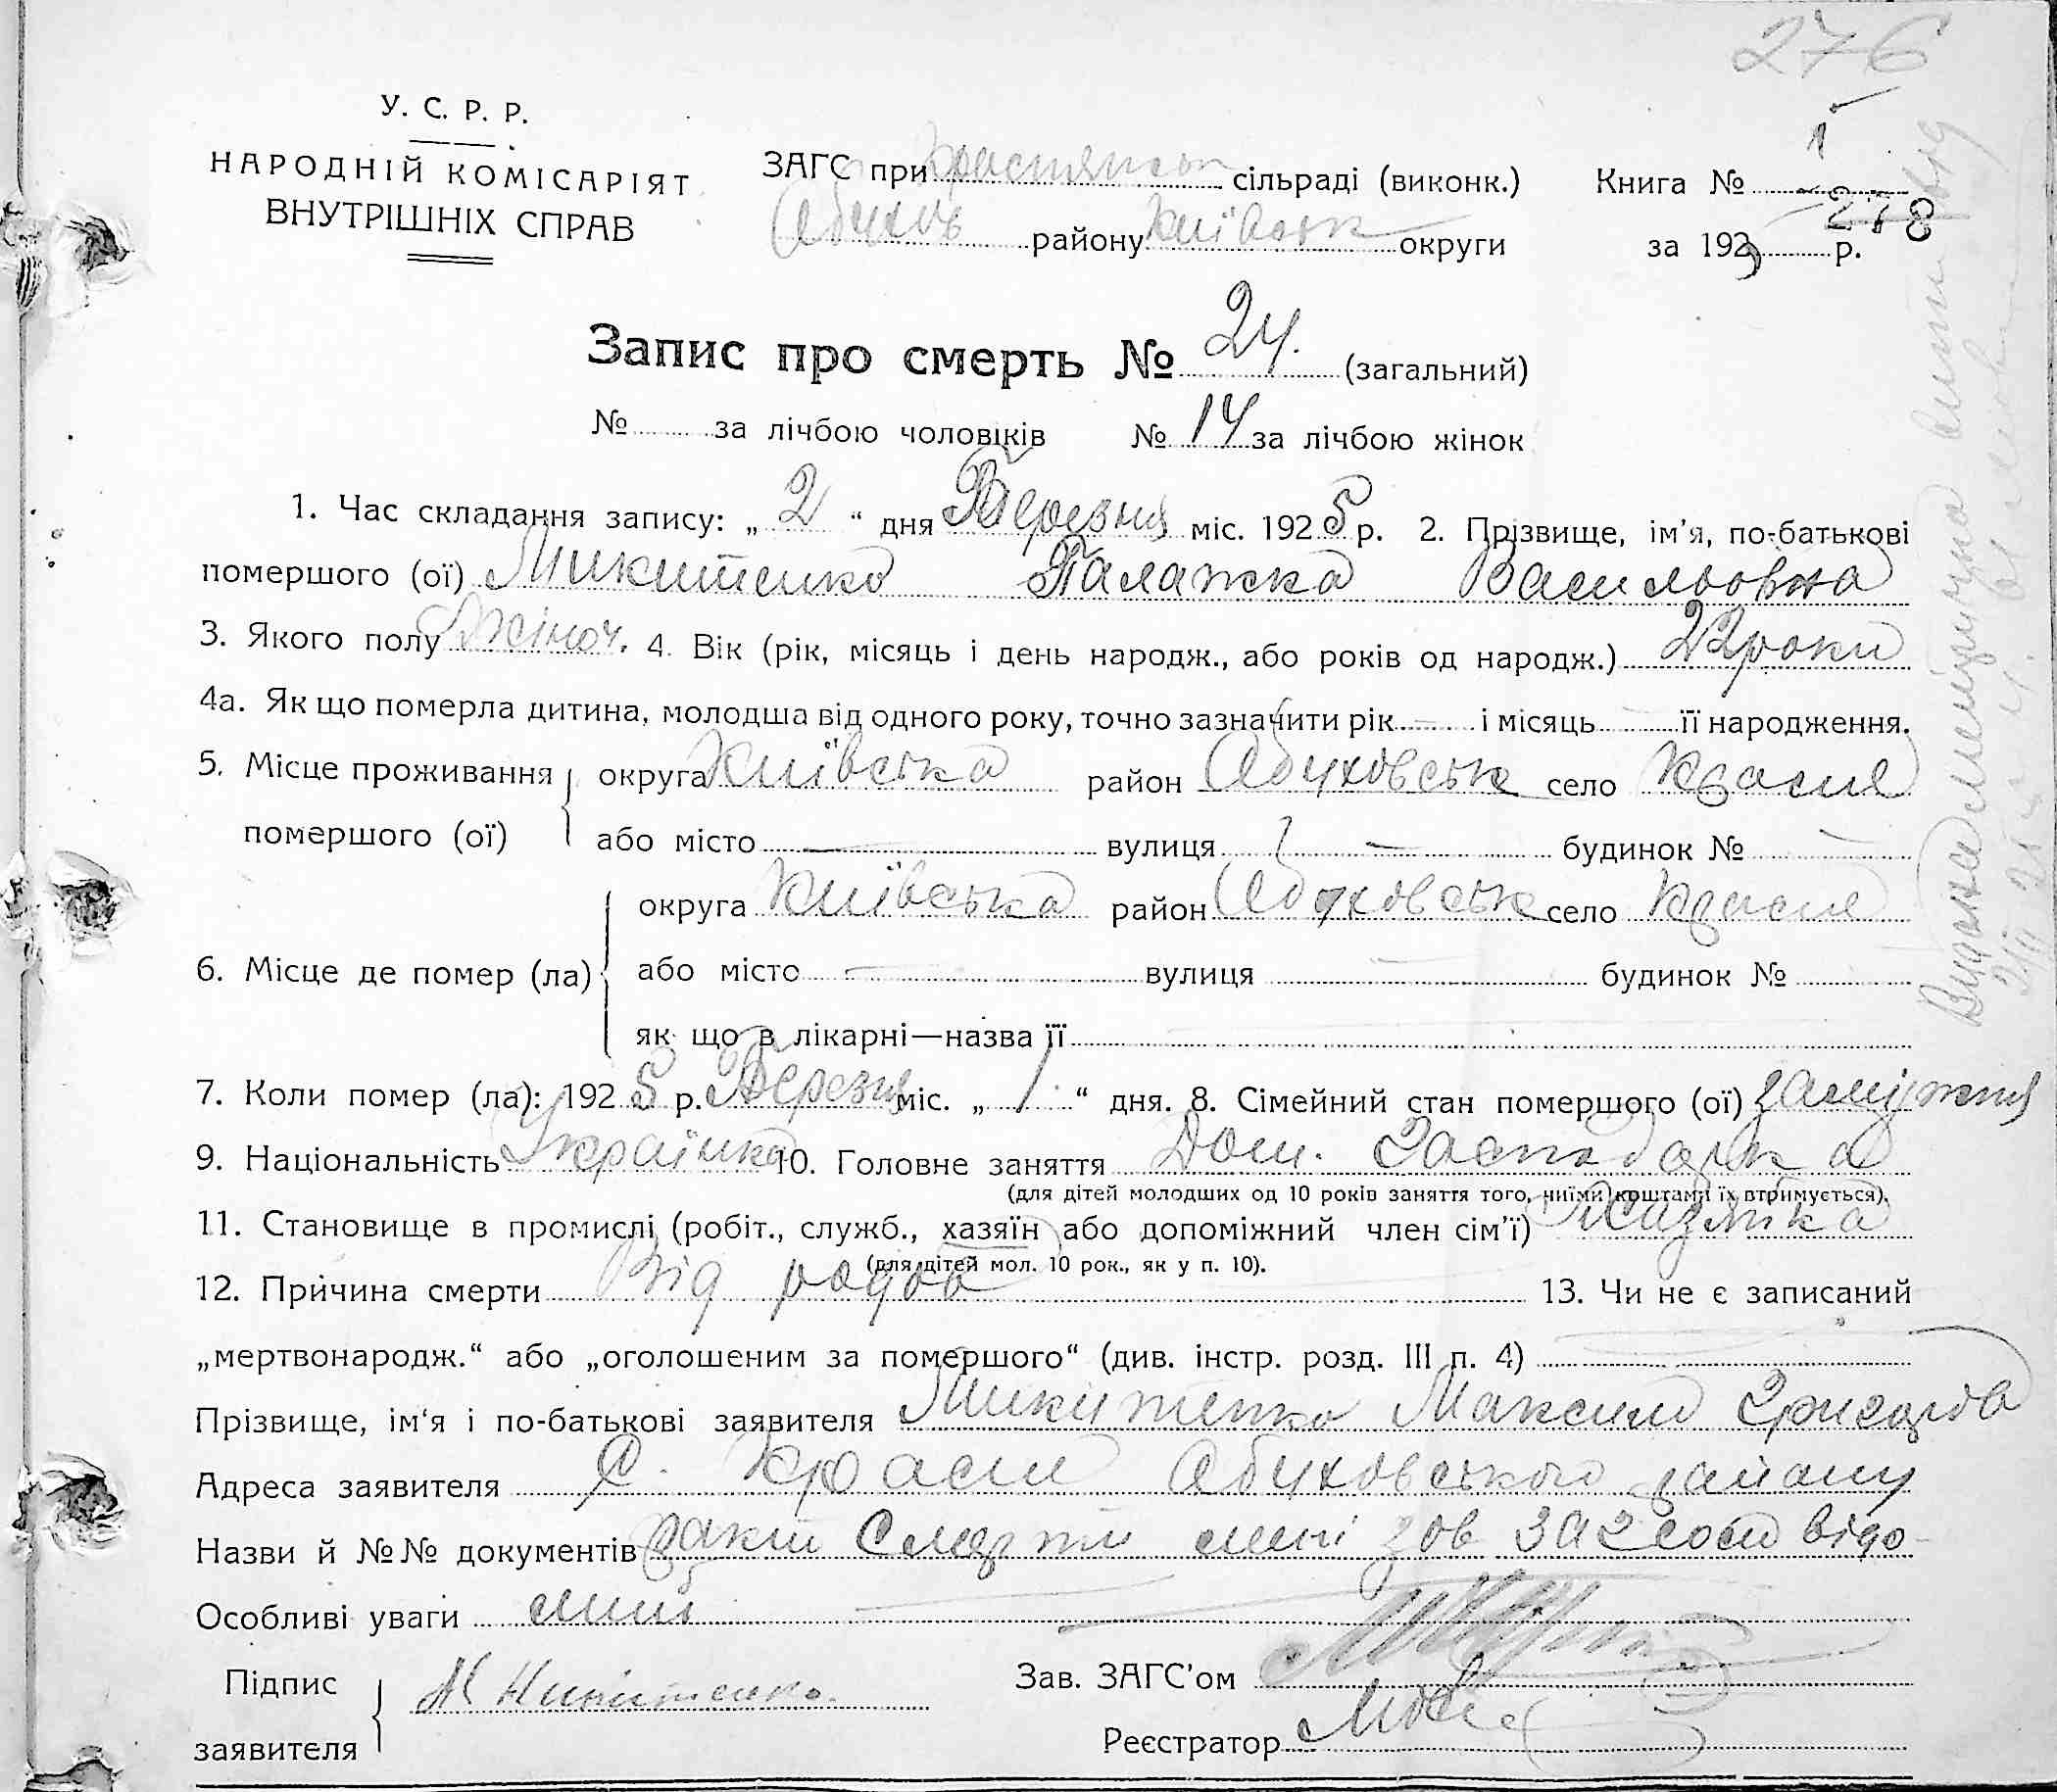 276
У. С. Р. Р.
НАРОДНІЙ КОМІСАРІЯТ
ВНУТРІШНІХ СПРАВ
ЗАГС при Краснянськ сільраді (виконк.)
Обухов району Київськ округи
Книга № 1
278
за 192 р.
Запис про смерть № 24. (загальний)
№ за лічбою чоловіків № 14 за лічбою жінок
1. Час складання запису: „ 2 “ дня Березня міс. 1925 р. 2. Прізвище, ім'я, по-батькові
помершого (ої) Микитенко Палажка Васильовна
3. Якого полу Жіноч. 4. Вік (рік, місяць і день народж., або років од народж.) 22 роки
4а. Як що померла дитина, молодша від одного року, точно зазначити рік — і місяць — її народження.
5. Місце проживання округа Київська район Обуховськ село Красне
помершого (ої) або місто — вулиця — будинок № —
округа Київська район Обуховськ село Красне
6. Місце де помер (ла) або місто — вулиця — будинок №
як що в лікарні—назва її
7. Коли помер (ла): 1925 р. Березня міс. „ 1 “ дня. 8. Сімейний стан помершого (ої) заміжня
9. Національність Українка 10. Головне заняття Дом. Господарка
(для дітей молодших од 10 років заняття того, чиїми коштами їх втримується).
11. Становище в промислі (робіт., служб., хазяїн або допоміжний член сім'ї) Хазяйка
(для дітей мол. 10 рок., як у п. 10).
12. Причина смерти Від родов 13. Чи не є записаний
„мертвонародж.“ або „оголошеним за помершого“ (див. інстр. розд. III п. 4)
Прізвище, ім'я і по-батькові заявителя Микитенко Максим Григоров
Адреса заявителя С. Красне Обуховського району
Назви й №№ документів факт смерти мені зав загсом відо-
Особливі уваги мий
Підпис заявителя М Микитенко.
Зав. ЗАГС'ом
Реєстратор